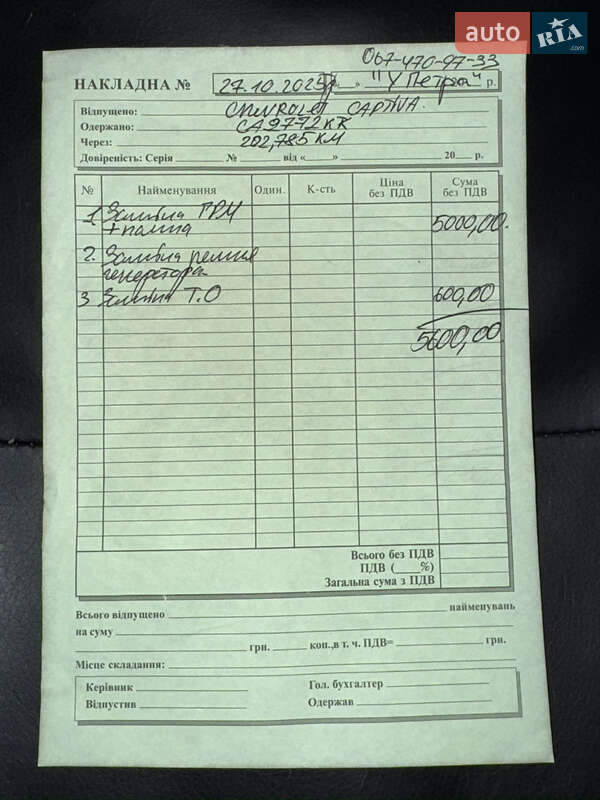 auto RIA .com
067-470-97-33
НАКЛАДНА № 27.10.2025р " У Петра " р.
Відпущено: CHEVROLET CAPTIVA.
Одержано: CA9772KK
Через: 202,785 КМ
Довіреність: Серія № від « » 20 р.
№ Найменування Один. К-сть Ціна без ПДВ Сума без ПДВ
1 Заміна ГРМ
+ помпа 5000,00.
2. Заміна ремня
генератора
3 Заміна Т.О 600,00
5600,00
Всього без ПДВ
ПДВ ( %)
Загальна сума з ПДВ
Всього відпущено найменувань
на суму
грн. коп.,в т. ч. ПДВ= грн.
Місце складання:
Керівник Гол. бухгалтер
Відпустив Одержав